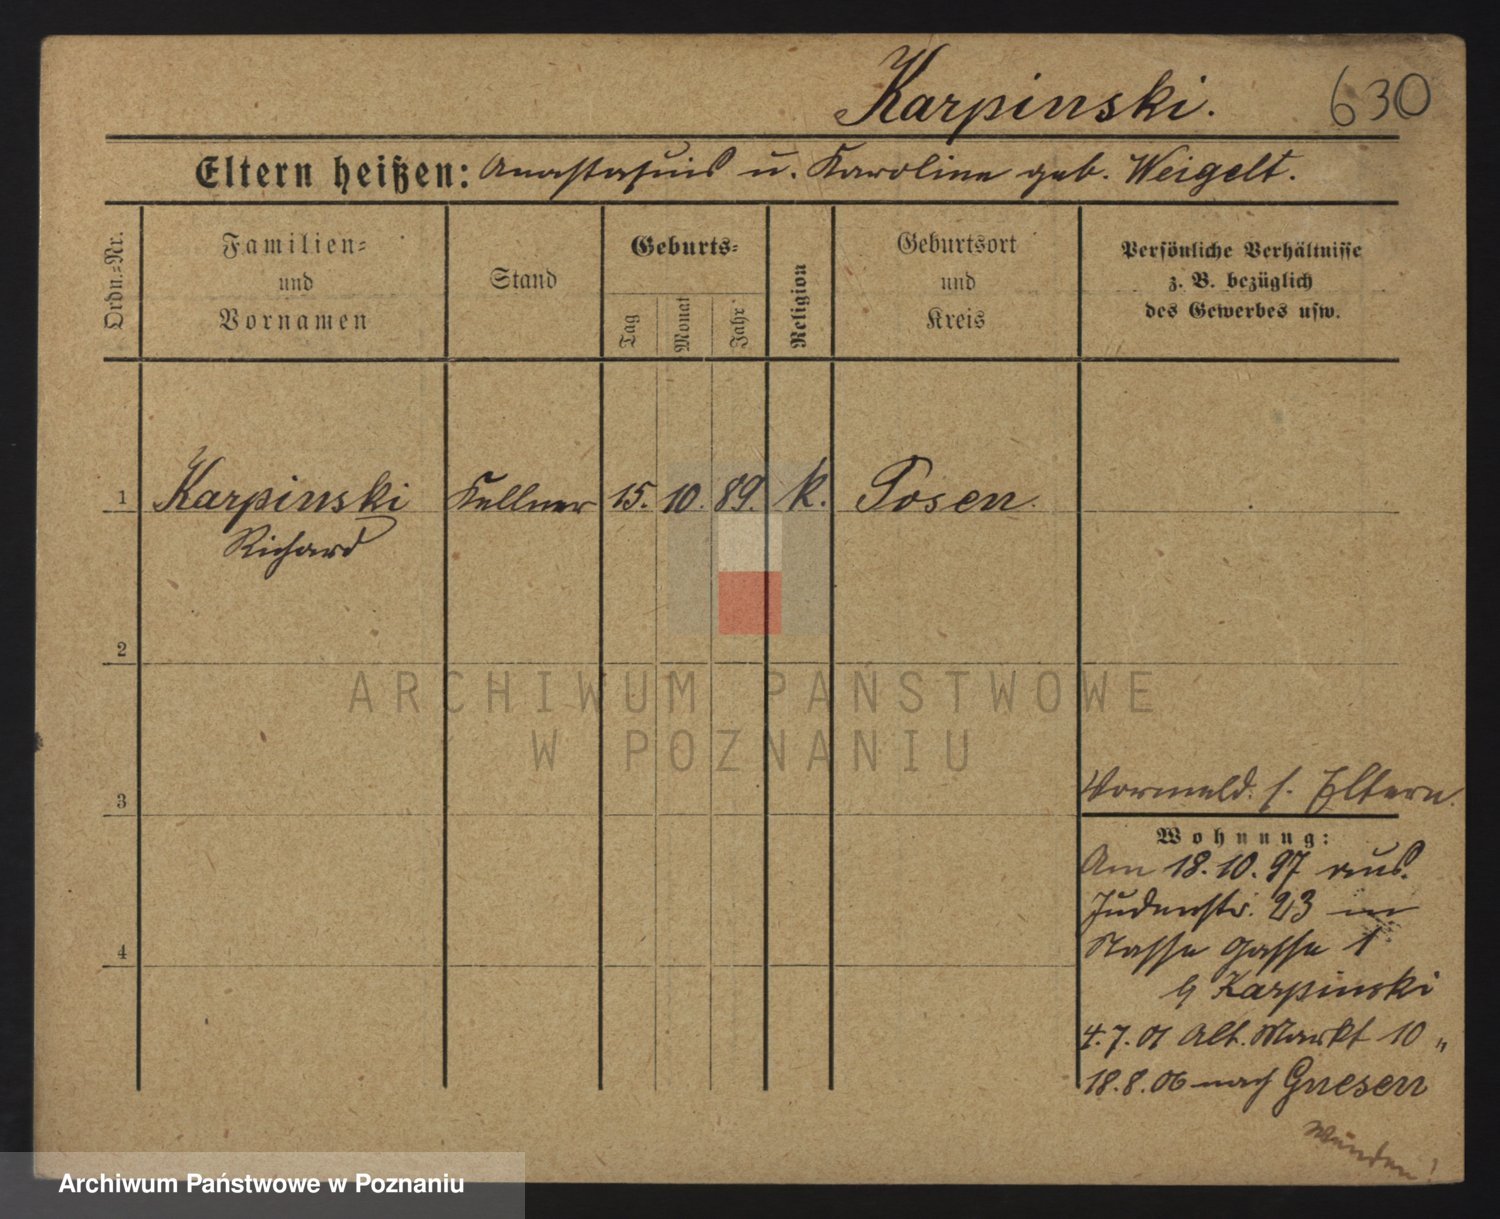 Karpinski. 630
Eltern heißen: Anastasius u. Karoline geb. Weigelt.
Ordn.-Nr.
Familien-
und
Vornamen
Stand
Geburts-
Tag
Monat
Jahr
Religion
Geburtsort
und
Kreis
Persönliche Verhältnisse
z. B. bezüglich
des Gewerbes usw.
1 Karpinski Kellner 15. 10. 89. k. Posen.
Richard
2
3
4
Vormeld. s. Eltern.
Wohnung:
Am 18.10.97 aus.
Judenstr. 23 in
Nasse Gasse 1
b Karpinski
4.7.01 Alt. Markt 10 "
18.8.06 nach Gnesen
ARCHIWUM PAŃSTWOWE
W POZNANIU
Archiwum Państwowe w Poznaniu